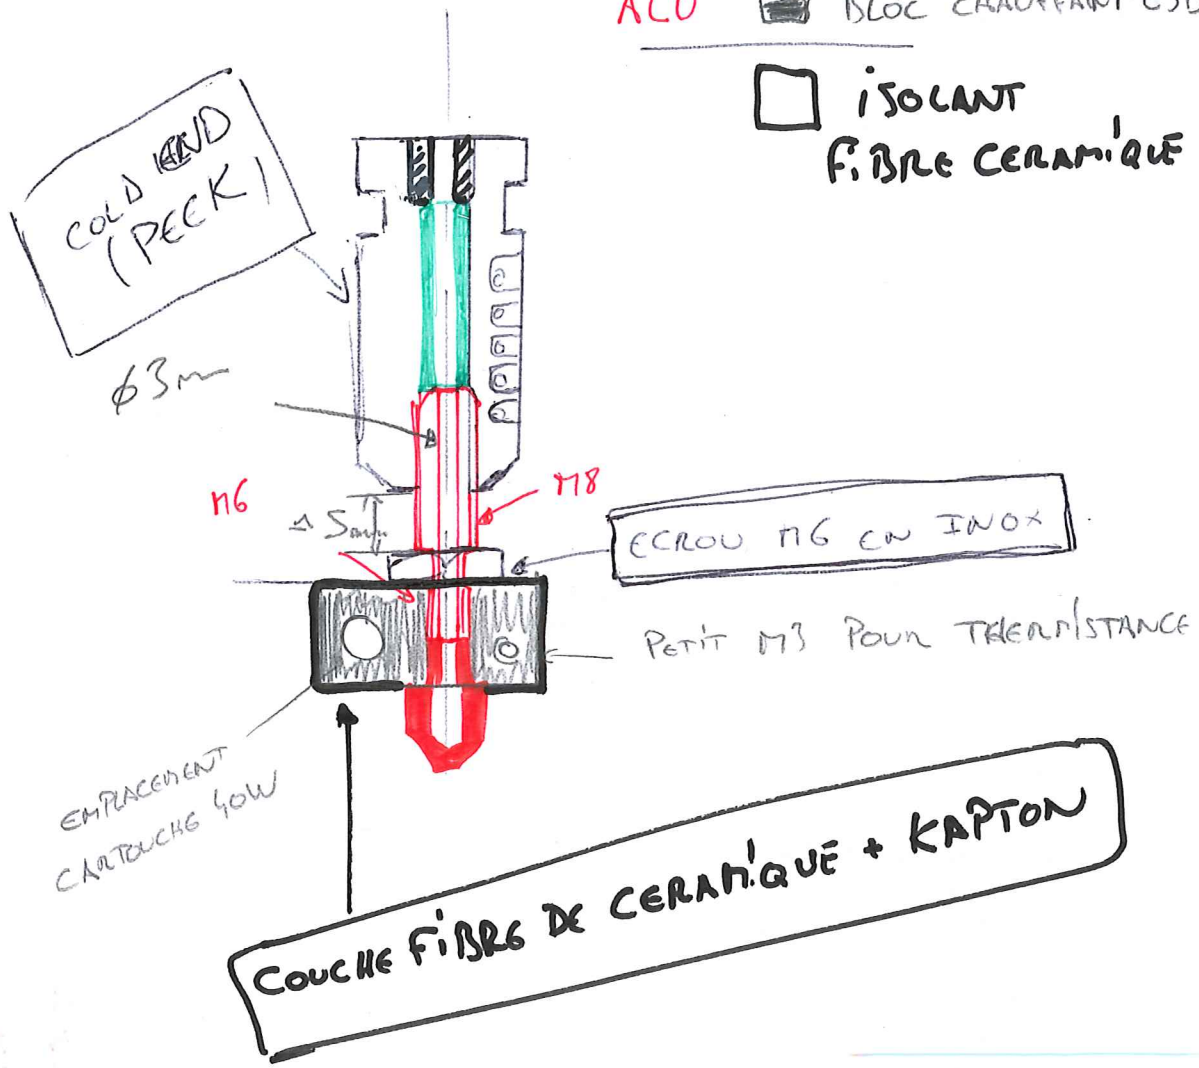 BLOC CHAUFFANT
ISOLANT
FIBRE CERAMIQUE
COLD END
(PEEK)
Ø3mm
M6
5mm
M8
ECROU M6 EN INOX
PETIT M3 POUR THERMISTANCE
EMPLACEMENT
CARTOUCHE 40W
COUCHE FIBRE DE CERAMIQUE + KAPTON